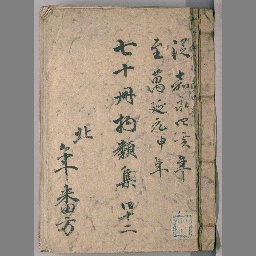 従嘉永四亥年
至萬延元申年
七十冊物類集 四十二
北
年番方